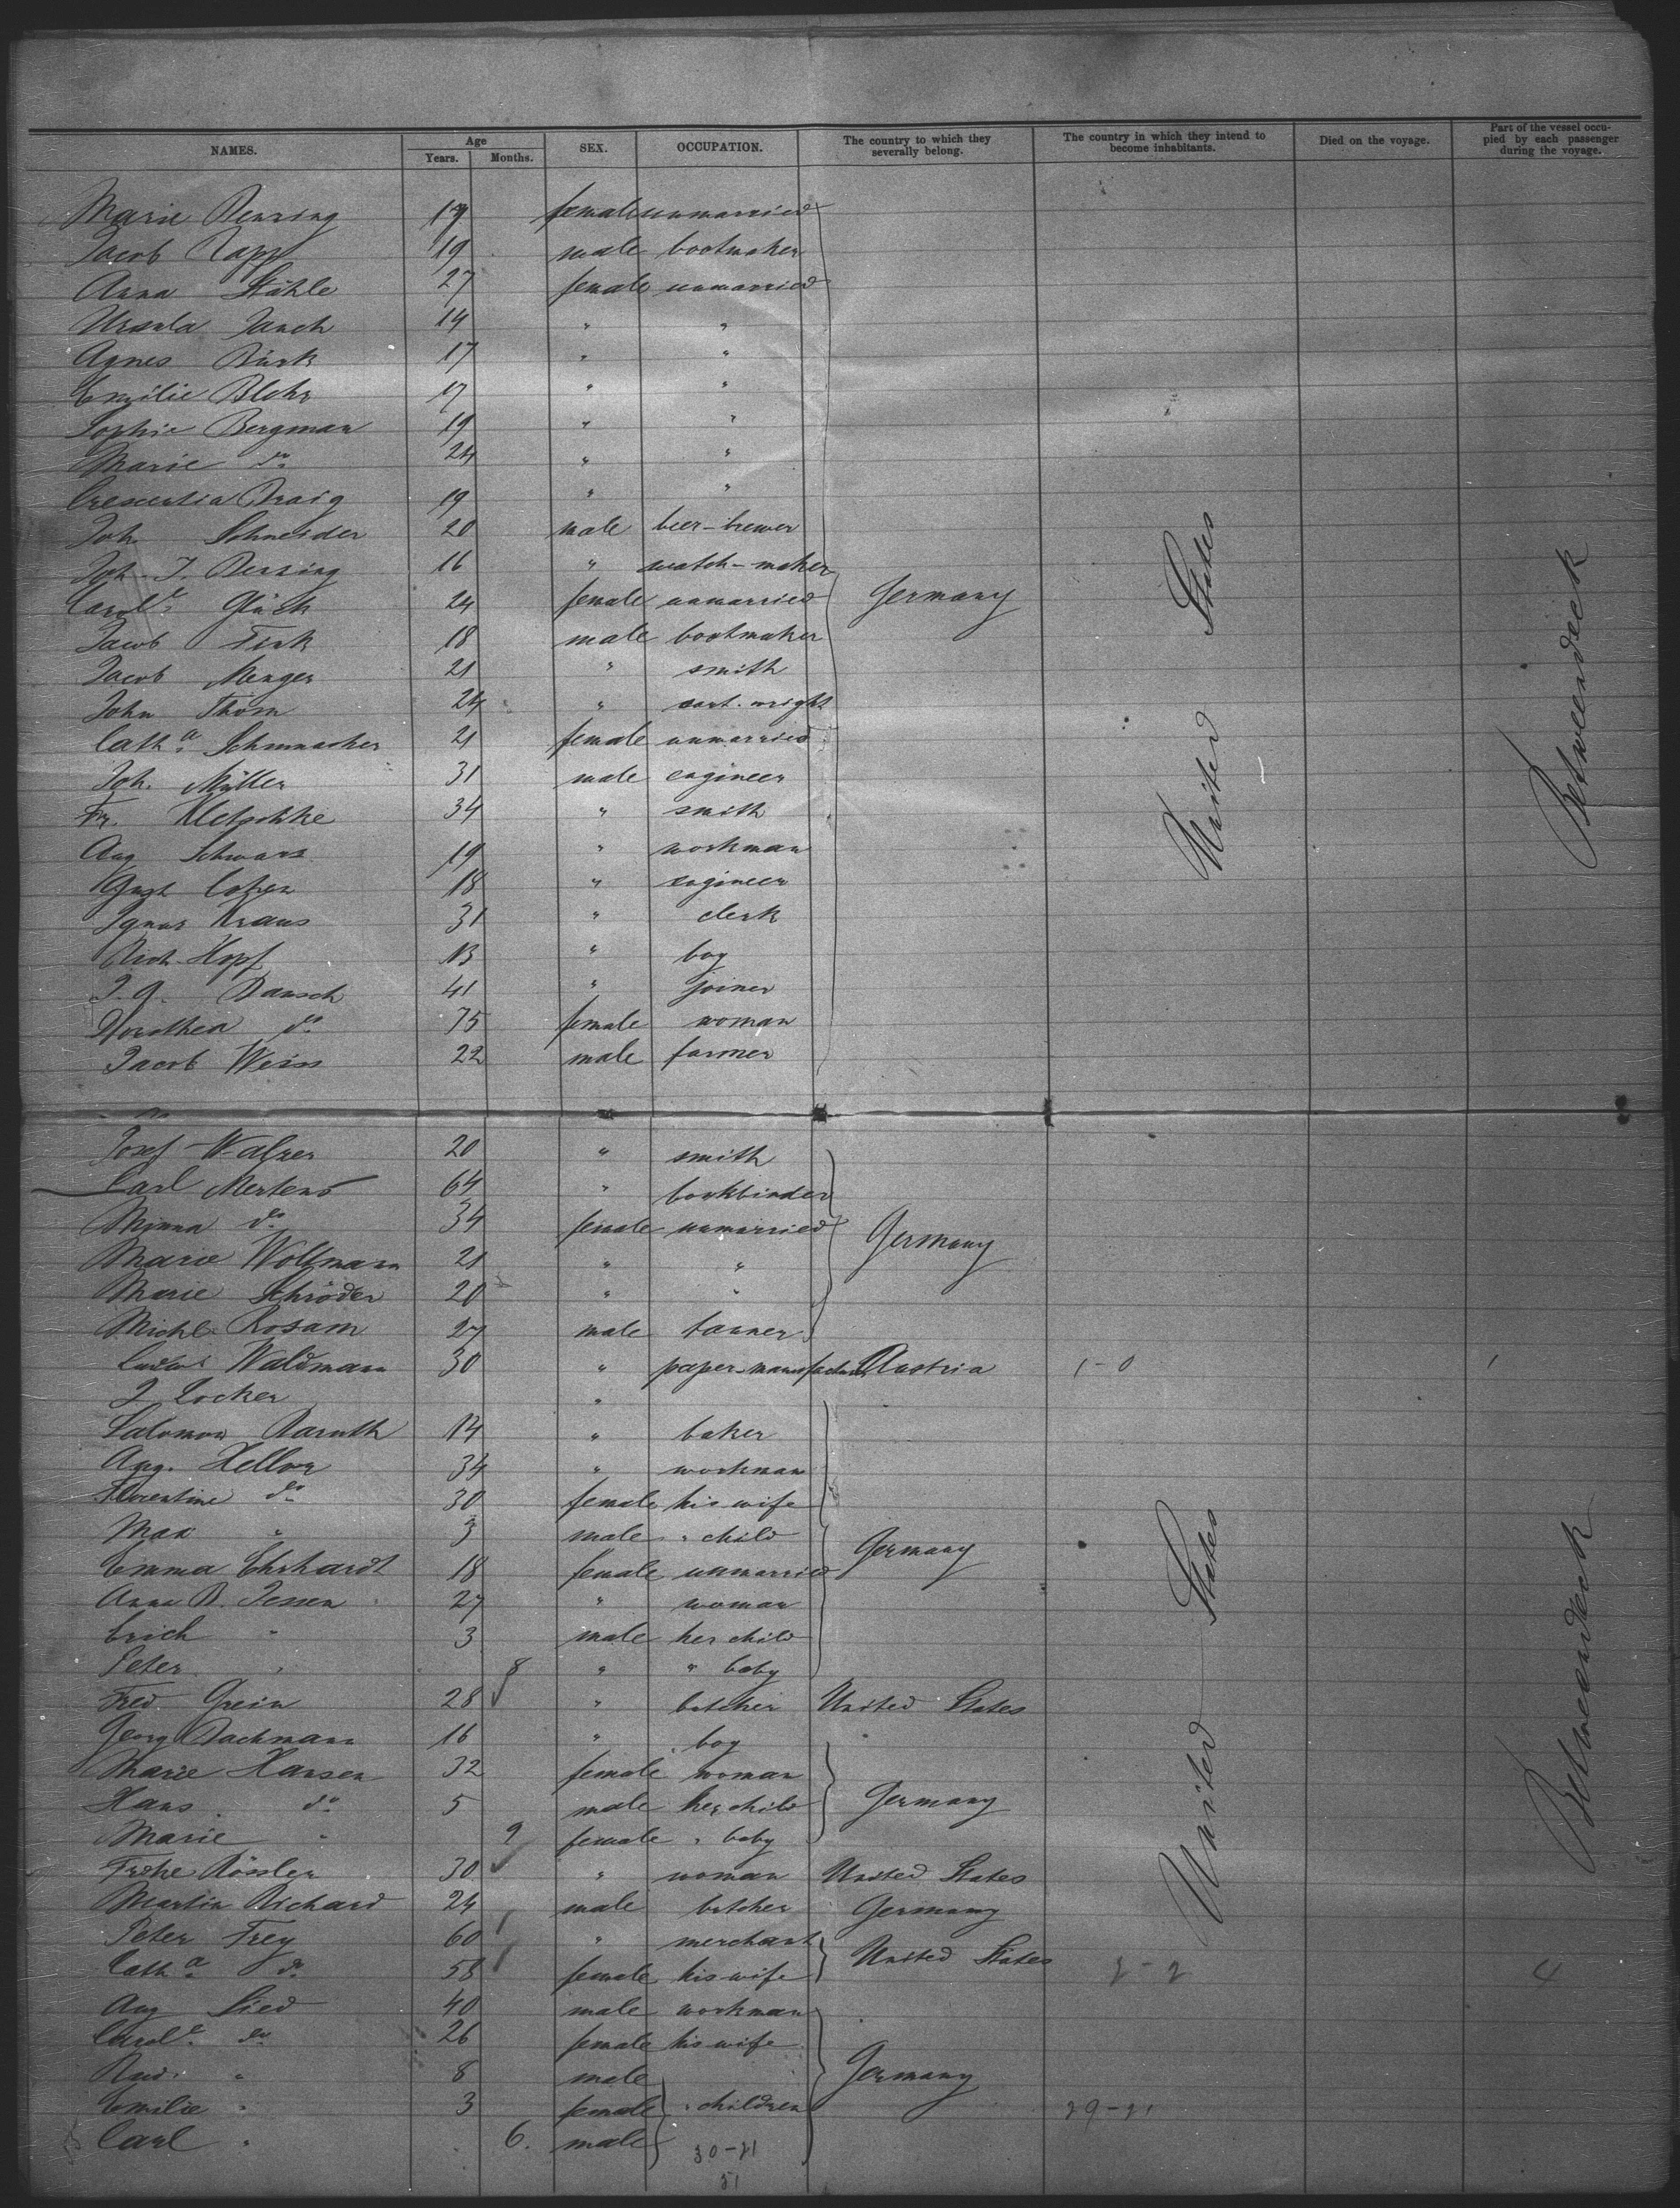 NAMES. Age Years. Months. SEX. OCCUPATION. The country to which they severally belong. The country in which they intend to become inhabitants. Died on the voyage. Part of the vessel occupied by each passenger during the voyage.
Marie 19 female unmarried
Jacob Rapp 19 male bootmaker
Anna Stähle 27 female unmarried
Ursula Jauch 14 " "
Agnes Bürk 17 " "
Emilie Blohr 17 " "
Sophie Bergman 19 " "
Marie do 24 " "
Crescentia Draig 19 " "
Joh Schneider 20 male beer-brewer
Joh. J. 16 " watch-maker
Carole Glück 24 female unmarried Germany
Jacob Fink 18 male bootmaker
Jacob Menger 21 " smith
John Thom 24 " cart-wright
Catha Schumacher 21 female unmarried
Joh. Müller 31 male engineer
Fr. Kletschke 34 " smith
Aug Schwarz 19 " workman
Gust Cohen 18 " engineer
Ignaz Kraus 31 " clerk
Rich Hopf 13 " boy
J. G. Bausch 41 " joiner
Dorothea do 75 female woman
Jacob Weiss 22 male farmer
United States
Betweendeck
Josef Walzer 20 " smith
Carl Mertens 64 " bookbinder
Minna do 34 female unmarried Germany
Marie Wollmann 21 " "
Marie Schröder 20 " "
Michl Rosam 27 male tanner
Waldmann 30 " paper-manufacturer Austria 1-0 1
J Locker "
Salomon Baruth 14 " baker
Aug. Hellwr 34 " workman
Florentine do 30 female his wife
Max " 3 male " child Germany
Emma Ehrhardt 18 female unmarried
Anna B. Jessen 27 " woman
Erich " 3 male her child
Peter " 8 " " baby
Fred Grein 28 " butcher United States
Georg Bachmann 16 " boy
Marie Hansen 32 female woman
Hans do 5 male her child Germany
Marie " 9 female " baby
Frohe Rössler 30 " woman United States
Martin Richard 24 male butcher Germany
Peter Frey 60 " merchant
Catha do 58 female his wife United States 2-2 4
Aug Lied 40 male workman
Carole do 26 female his wife
Rud. " 8 male Germany
Emilie " 3 female " children 29-21
Carl " 6. male 30-21
51
United States
Betweendeck